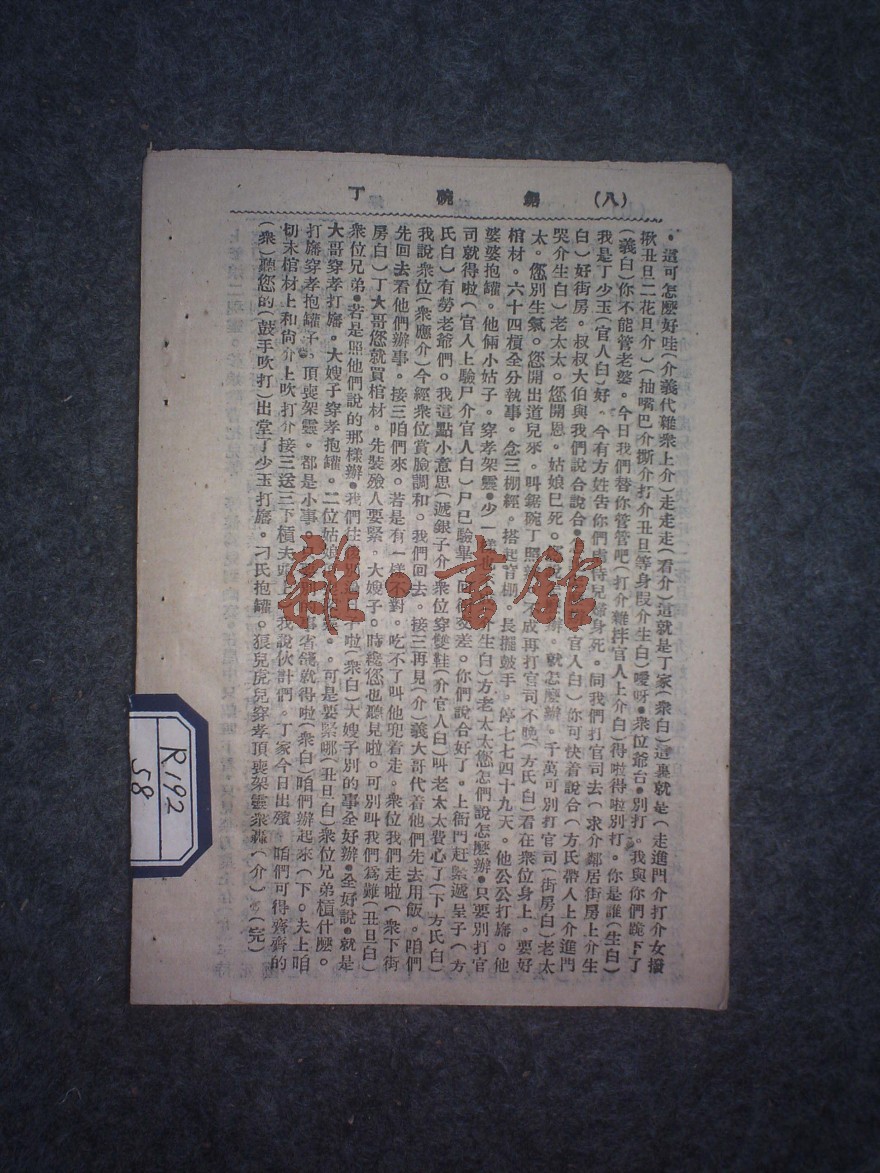 (八) 鋸碗丁
。這可怎麼好哇(介義代雜衆上介)走走走(看介)這就是丁家(衆白)這裏就是(走進門介打介女撥
揪丑旦二花旦介)(抽嘴巴介撕介打介丑旦等身叚介生白)噯呀●衆位爺台●別打。我與你們跪下了
(義白)你不能管老婆。今日我們替你管管吧(打介雜拌官人上介白)得啦得啦別打。你是誰(生白)
我是丁少玉(官人白)好。今有方姓告你們虐待兒媳身死。同我們打官司去(求介鄰居街房上介生
白)好街房。叔叔大伯與我們說合說合●官人白)你可快着說合(方氏帶人上介進門
哭介生白)老太太。您開恩。姑娘已死。就怎麼辦。千萬可別打官司(街房白)老太
太。您別生氣。您開出道兒來。叫鋸碗丁照不成再打官司不晚(方氏白)看在衆位身上。要好
棺材。六十四槓全分執事。念三棚經。搭起官棚。長擺鼓手。停七七四十九天。他公公打旛。他
婆婆抱罐。他倆小姑子。穿孝架靈●少一樣也介生白)方老太太您怎們說怎麼辦●只要別打官
司就得啦(官人上驗尸介官人白)尸已驗畢回衙交差。你們說合好了。上衙門赶緊遞呈子(方
氏白)有勞老爺們。我這點小意思(遞銀子介衆位穿雙鞋(介官人白)叫老太太費心了(下方氏白)
我說衆位(衆應介)今經衆位賞臉調和。我們回去。接三再見(介)義大哥代着他們先去用飯。咱們
先回去看他們辦事。接三咱們來。若是有一樣不對。吃不了叫他兜着走。衆位我們走啦(衆下街
房白)丁大哥您就買棺材。先裝殮人要緊。大嫂子。時纔您也聽見啦。可別叫我們爲難(丑旦白)
衆位兄弟●若是照他們說的那樣辦●我們往啦(衆白)大嫂子別的事全好辦●全好說●就是
大哥穿孝打旛。大嫂子穿孝抱罐。二位姑娘。可是要緊哪(丑旦白)衆位兄弟槓什麼。
打旛穿孝抱罐子。頂喪架靈。都是小事。事省錢就得啦(衆白)咱們辦起來(下。夫上咱
切末棺材上和尚介上吹打介接三送三下槓夫頭上我說伙計們。丁家今日出殯。咱們可得齊齊的
(衆)聽您的(鼓手吹打)出堂丁少玉打旛。刁氏抱罐。狼兒虎兒穿孝頂喪架靈衆(介)●(完)
雜·書館
R192
58